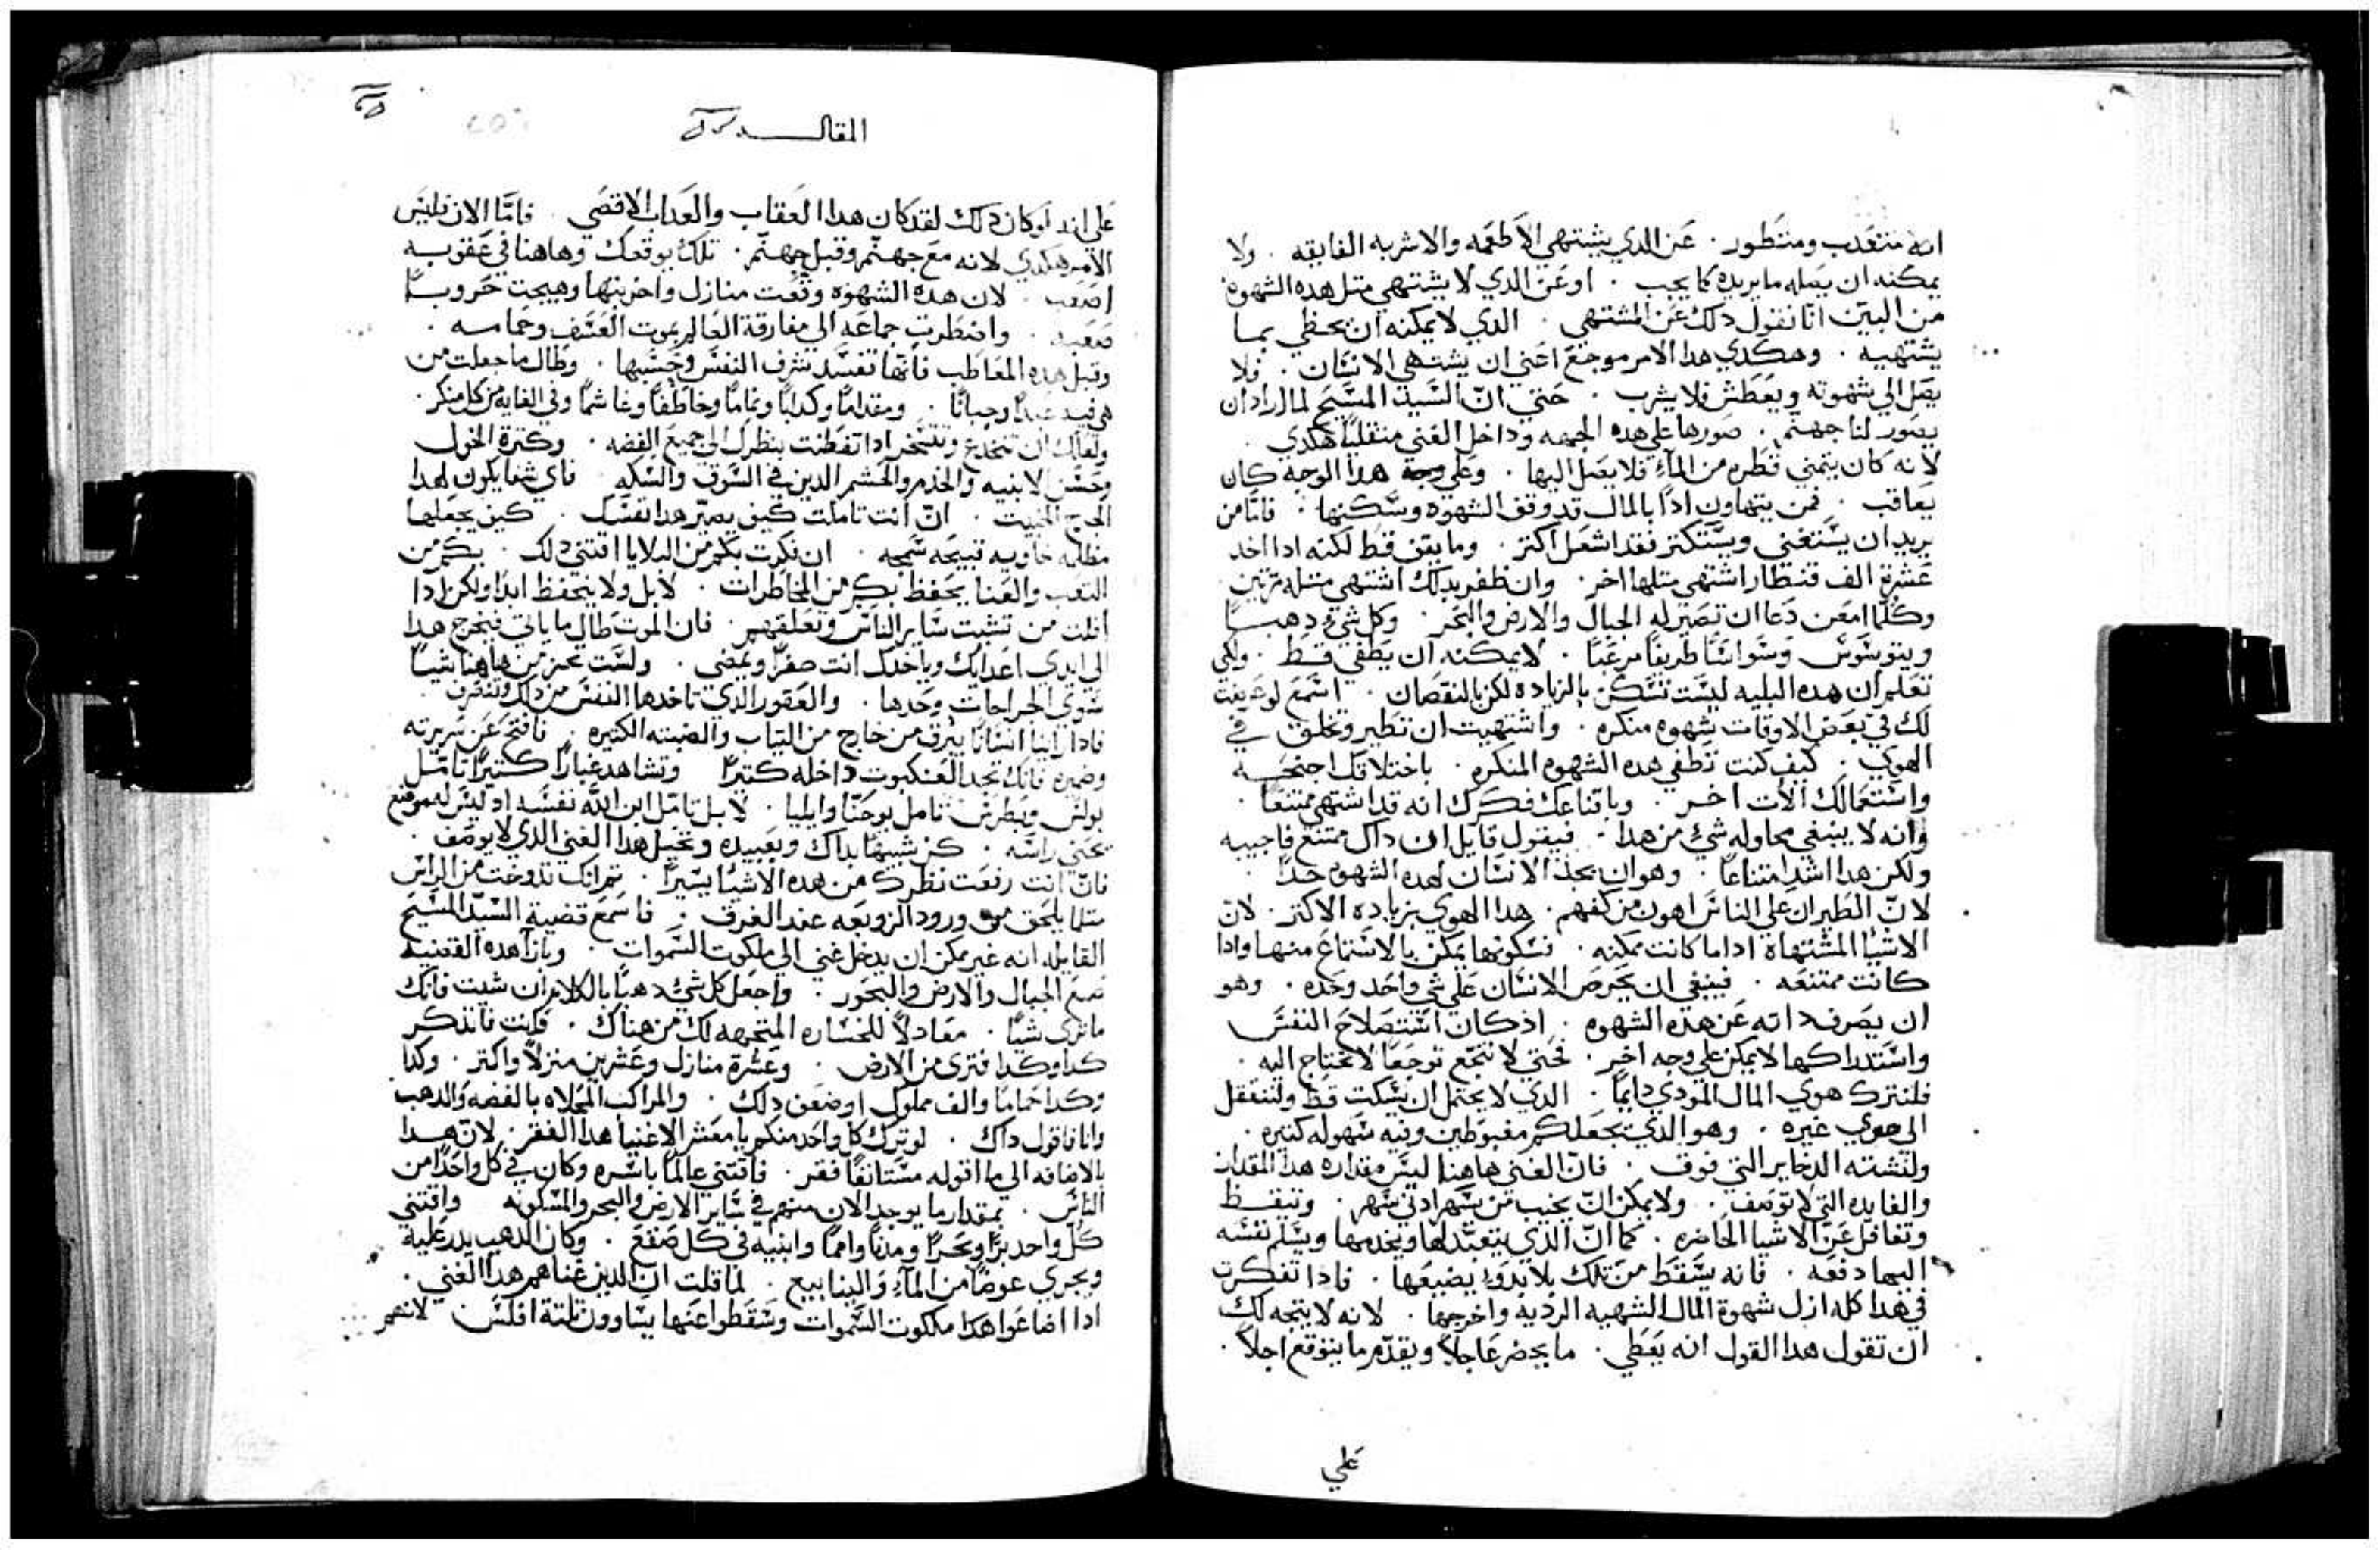 انه متعدب ومتطور . عن الدي يشتهي الاطعمه والاشربه الفايقه . ولا
يمكنه ان يصله ما يريده كما يجب . او عن الدي لا يشتهي متل هده الشهوة
من البين اننا نقول دلك عن المشتهي . الدي لا يمكنه ان يحظي بما
يشتهيه . وهكدي هدا الامر موجع اعني ان يشتهي الانسان . ولا
يصل الي شهوته ويعطش فلا يشرب . حتي ان السيد المسيح لما اراد ان
يصور لنا جهنم . صورها علي هده الجهه وداخل الغني متقليا هكدي .
لانه كان يتمني قطره من المآء فلا يصل اليها . وعلي وجه هدا الوجه كان
يعاقب . فمن يتهاون ادا بالمال قد وقف الشهوه وسكنها . فاما من
يريد ان يستغني ويستكتر فقد اشعل اكتر . وما يقف قط لكنه ادا اخد
عشرة الف قنطار اشتهي متلها اخر . وان ظفر بدلك اشتهي متله مرتين
وكلما امعن دعا ان تصير له الجبال والارض والبحر . وكل شي دهبا
ويتوسوس وسواسا طريفا مرعبا . لا يمكنه ان يطفي قط . ولكي
تعلم ان هده البليه ليست تسكن بالزياده لكن بالنقصان . اسمع لو عرضت
لك في بعض الاوقات شهوه منكره . واشتهيت ان تطير وتحلق في
الهوي . كيف كنت تطفي هده الشهوه المنكره . باختلاقك اجنحه
واستعمالك الات اخر . وباقناعك فكرك انه قد اشتهي ممتنعا .
وانه لا ينبغي محاوله شي من هدا . فيقول قايل ان داك ممتنع فاجيبه
ولكن هدا اشد امتناعا . وهو ان يجد الانسان لهده الشهوه حدا .
لان الطيران علي الناس اهون من كفهم . هدا الهوي بزياده الاكتر . لان
الاشيا المشتهاة ادا ما كانت ممكنه . فسكونها يمكن بالاستماع منها وادا
كانت ممتنعه . فينبغي ان يحرص الانسان علي شي واحد وحده . وهو
ان يصرف داته عن هده الشهوه . اذ كان استصلاح النفس
واستدراكها لا يمكن علي وجه اخر . فحتي لا نتجع توجعا لا نحتاج اليه .
فلنترك هوي المال المودي دايما . الدي لا يحتمل ان يسكت قط ولننتقل
الي هوي غيره . وهو الدي يجعلكم مغبوطين وفيه سهوله كتيره .
ولنشته الدخاير التي فوق . فان العني هاهنا ليس مقداره هدا المقدار
والفايده التي لا توصف . ولا يمكن ان يخيب من سهر ادني سهر . وتيقظ
وتغافل عن الاشيا الحاضره . كما ان الذي يتعبد لها ويخدمها ويسلم نفسه
اليها دفعه . فانه يسقط من تلك بلا بد وان يضيعها . فادا تفكرت
في هدا كله ازل شهوة المال الشهيه الرديه واخرجها . لانه لا يتجه لك
ان تقول هدا القول انه يعطي . ما يحضر عاجلا ويقدم ما يتوقع اجلا .
علي
المقاله
علي انه لو كان دلك لقد كان هدا العقاب والعداب الاقصي . فاما الان فليس
الامر هكدي لانه مع جهنم وقبل جهنم . تلك يوقعك وهاهنا في عقوبه
اصعب . لان هده الشهوه وقعت منازل واخربتها وهيجت حروبا
صعبه . واضطرت جماعه الي مفارقة العالم بموت العنف وخماسه .
وقبل هده المعاطب فانها تفسد شرف النفس وحسبها . وطال ما جعلت من
هي فيه عبدا وجبانا . ومقداما وكدابا ونماما وخاطفا وغاشما وفي الغايه من كل منكر .
ولعلك ان تنخدع وتتسخر ادا تفطنت بنظرك الي جميع الفضه . وكترة الخول
وحسن الابنيه والخدم والحشم الدين في السوق والسكه . فاي شفا يكون لهدا
الجرح الخبيت . ان انت تاملت كيف يصير هدا نفسك . كيف يجعلها
مظلمه خاويه قبيحه سمجه . ان فكرت بكم من البلايا اقتني دلك . بكم من
التعب والعنا يحفظ بكم من المخاطرات . لا بل ولا يتحفظ ابدا ولكن ادا
افلت من تشبت ساير الناس وتعلقهم . فان الموت طال ما ياتي فيخرج هدا
الي ايدي اعدايك وياخدك انت صفرا ويمضي . ولست تحرز من هاهنا شيا
سوي الجراحات وحدها . والعقور الدي تاخدها النفس من دلك وتنصرف .
فادا راينا انسانا يبرق من خارج من التياب والضبنه الكتيره . فافتح عن سريرته
وضميره فانك تجد العنكبوت داخله كتيرا وتشاهد غبارا كتيرا تامل
بولس وبطرس تامل يوحنا وايليا . لا بل تامل ابن الله نفسه اد ليس له موضع
يحني راسه . كن شبيها بداك وبعبيده وتخيل هدا الغني الدي لا يوصف .
فان انت رفعت نظرك من هده الاشيا يسيرا . ثم انك تدوخت من الراس
متلما يلحق من ورود الزوبعه عند الغرق . فاسمع قضية السيد المسيح
القايله انه غير ممكن ان يدخل غني الي ملكوت السموات . وبازآ هده القضيه
ضع الجبال والارض والبحور . واجعل كل شي دهبا بالكلام ان شيت فانك
ما تري شيا . معادلا للخساره المتجهه لك من هناك . فانت فاتدكر
كدا وكدا فتري من الارض . وعشرة منازل وعشرين منزلا واكتر . وكدا
وكدا حماما والف مملوك او ضعف دلك . والمراكب المحلاه بالفضه والدهب
وانا فاقول داك . لو ترك كل واحد منكم يا معشر الاغنيا هدا الفقر . لان هدا
بالاضافه الي ما اقوله مستانفا فقر . فاقتني عالما باسره وكان في كل واحدا من
الناس . بمقدار ما يوجد الان منهم في ساير الارض والبحر والمسكونه واقتني
كل واحد برا وبحرا ومدنا وامما وابنيه في كل صقع . وكان الدهب يدر عليه
ويجري عوضا من المآء والينابيع . لما قلت ان الدين غناهم هدا الغني .
ادا اضاعوا هكدا ملكوت السموات وسقطوا عنها يساوون تلتة افلس لانهم